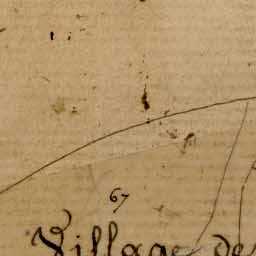 67
Village de